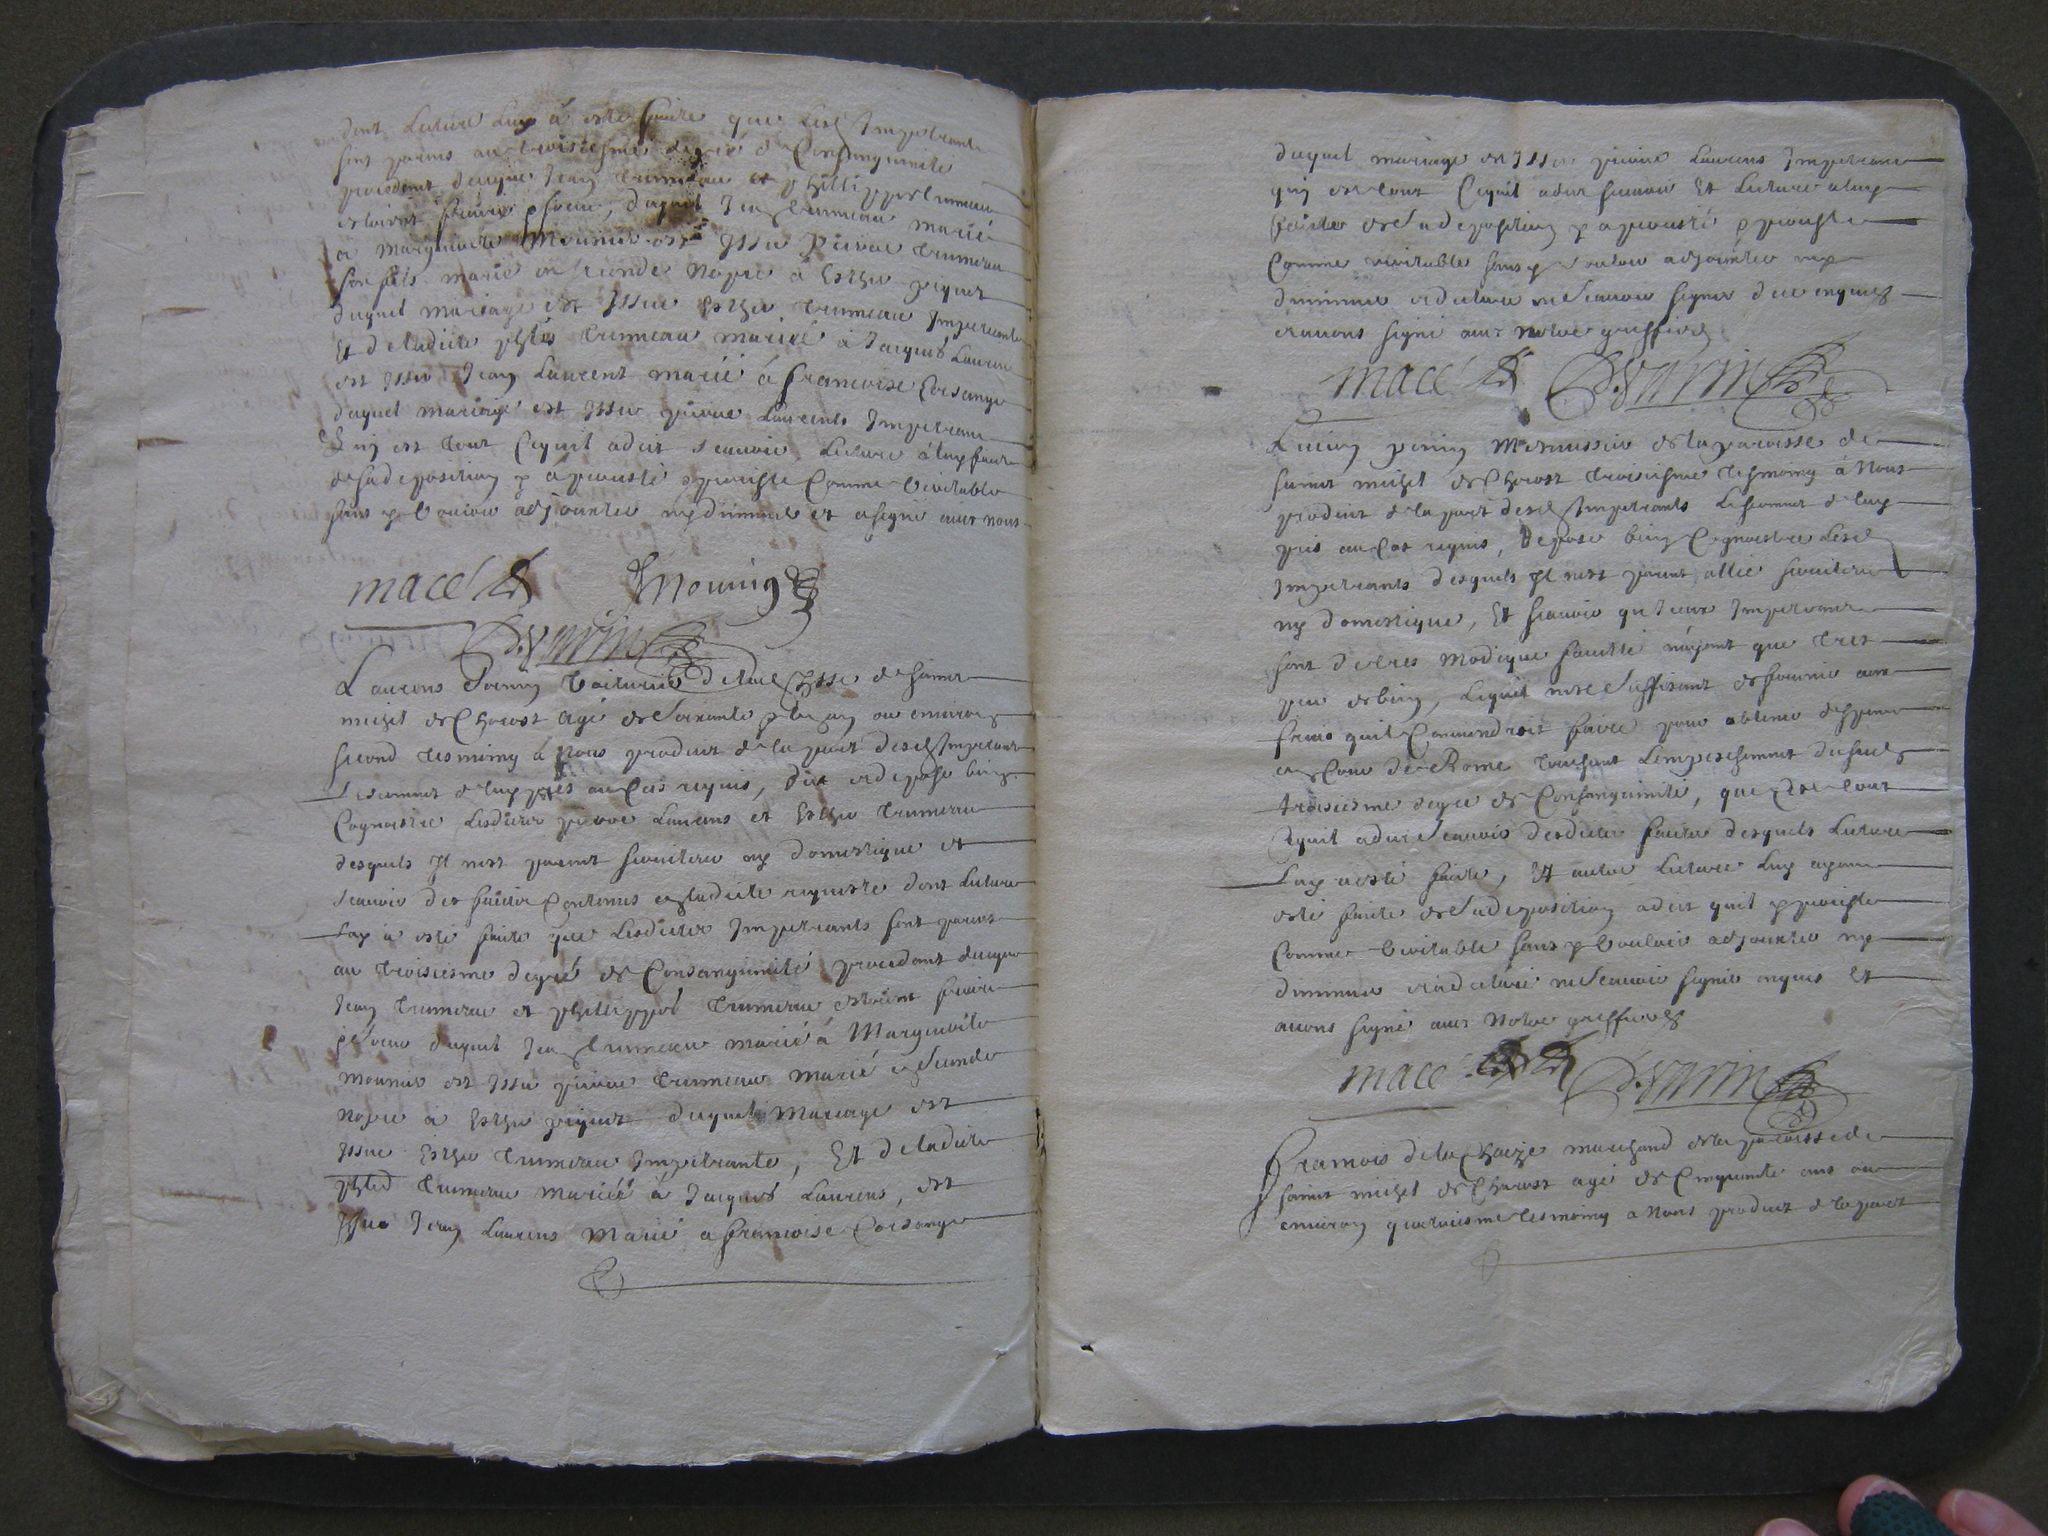 dont Lecture Luy à esté faicte que Lesd Impetrants
sont parens au troisiesme degré de Consanguinité
procedent de ce que Jean Trumeau et phillippes trumeau
estoient frere & soeur, duquel Jean trumeau marié
a marguerite Mounier est Issu pierre trumeau
son fils marié en seconde Nopce à Esther piquet
duquel mariage est Issue Esther trumeau Impetrante
Et de ladicte phles trumeau mariée à Jacques Laurens
est Issu Jean Laurent marié à francoise Corsange
duquel mariage est Issu pierre Laurents Impetrant
Qui est tout Cequil a dict scauoir Lecture à luy faicte
de sa deposition y a percisté & perciste Comme veritable
sans y vouloir adjouxter ny diminuer et a signé auec nous
mace Mounier
D. Varin
Laurens voiturier de la psse de saint
michel de Charost agé de Soixante & un an ou environ
second tesmoing à nous produit de la part desd Impetrants
Leserment de luy pris au Cas requis, dit et depose bien
Cognoistre Lesdicts pierre Laurens et Esther trumeau
desquels Il nest parent seruiteur ny domestique et
scauoir des faicts Contenus en ladicte requeste dont Lecture
Luy a esté faicte que Lesdicts Impetrants sont parens
au troisiesme degré de Consanguinité procedant de ce que
Jean trumeau et phillippes trumeau estoient frere
& soeur duquel Jean trumeau marié à Marguerite
mounier est Issu pierre trumeau marié en Seconde
nopce à Esther piquet duquel Mariage est
Issue Esther trumeau Impetrante, Et de ladicte
phles trumeau mariée à Jacques Laurens, est
Issu Jean Laurens Marié a francoise Corsange
duquel mariage est Issu pierre Laurens Impetrant
qui est tout Cequil a dit scauoir Et Lecture a luy
faicte de Sa deposition y a percisté & perciste
Comme veritable sans y vouloir adjouxter ny
diminuer et a declaré ne Scauoir signer de ce enquis
et auons signé auec Notre greffier
mace D. Varin
perin Mernissier de la paroisse de
saint michel de Charost troisiesme tesmoing à Nous
produit de la part desd Impetrants Leserment de luy
pris au Cas requis, Depose bien Cognoistre Lesd
Impetrants desquels Il nest parent allié seruiteur
ny domestique, Et scauoir que Iceux Impetrants
sont de tres Modique faculté n'ayant que tres
peu de bien, Lequel nest Suffisant de fournir aux
frais quil Conuiendroit faire pour obtenir dispence
en Cour de Rome touchant Lempeschement dudict
troisiesme degré de Consanguinité, que Cest tout
Cequil a dict Scauoir desdicts faicts desquels Lecture
Luy a esté faicte, Et autre Lecture Luy ayant
esté faicte de Sa deposition a dit quil y perciste
Comme veritable sans y vouloir adjouxter ny
diminuer et a declaré ne Scauoir signer enquis Et
auons signé auec Notre greffier
mace D. Varin
francois de la Chaize marchand de la paroisse de
saint michel de Charost agé de Cinquante ans ou
environ quatriesme tesmoing a Nous produit de la part